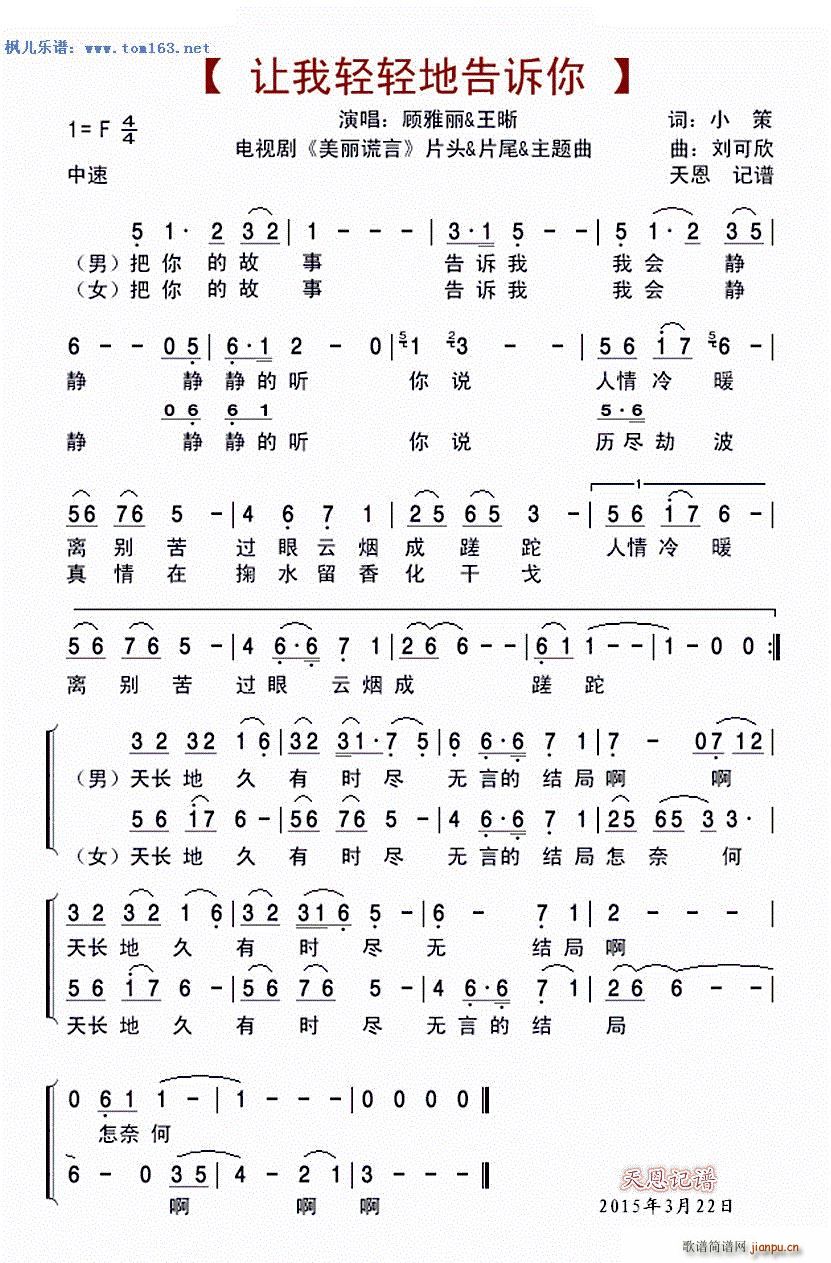 枫儿乐谱：www.tom163.net
【 让我轻轻地告诉你 】
1= F 4/4 演唱：顾雅丽&王晰 词：小 策
电视剧《美丽谎言》片头&片尾&主题曲 曲：刘可欣
中速 天恩 记谱
5 1· 2 3 2 | 1 - - - | 3·1 5 - - | 5 1·2 3 5 |
（男）把你的故 事 告诉我 我会 静
（女）把你的故 事 告诉我 我会 静
6 - - 0 5 | 6·1 2 - 0 | 5 1 2 3 - - | 5 6 1 7 5 6 - |
静 静静的听 你说 人情冷 暖
0 6 6 1 5·6
静 静静的听 你说 历尽劫 波
1
5 6 7 6 5 - | 4 6 7 1 | 2 5 6 5 3 - | 5 6 1 7 6 - |
离别苦 过眼云烟成蹉跎 人情冷暖
真情在 掬水留香化干戈
5 6 7 6 5 - | 4 6·6 7 1 | 2 6 6 - - | 6 1 1 - - | 1 - 0 0 :||
离别苦 过眼 云烟成 蹉 跎
3 2 3 2 1 6 | 3 2 3 1·7 5 | 6 6·6 7 1 | 7 - 0 7 1 2 |
（男）天长地 久 有 时尽 无言的结局啊 啊
5 6 1 7 6 - | 5 6 7 6 5 - | 4 6·6 7 1 | 2 5 6 5 3 3· |
（女）天长地 久 有 时尽 无言的结局怎奈 何
3 2 3 2 1 6 | 3 2 3 1 6 5 - | 6 - 7 1 | 2 - - - |
天长地久 有 时 尽 无 结局啊
5 6 1 7 6 - | 5 6 7 6 5 - | 4 6·6 7 1 | 2 6 6 - - |
天长地久 有 时 尽 无言的结 局
0 6 1 1 - | 1 - - - | 0 0 0 0 ||
怎奈何
6 - 0 3 5 | 4 - 2 1 | 3 - - - ||
啊 啊 啊
天恩记谱
2015年3月22日
歌谱简谱网 jianpu.cn